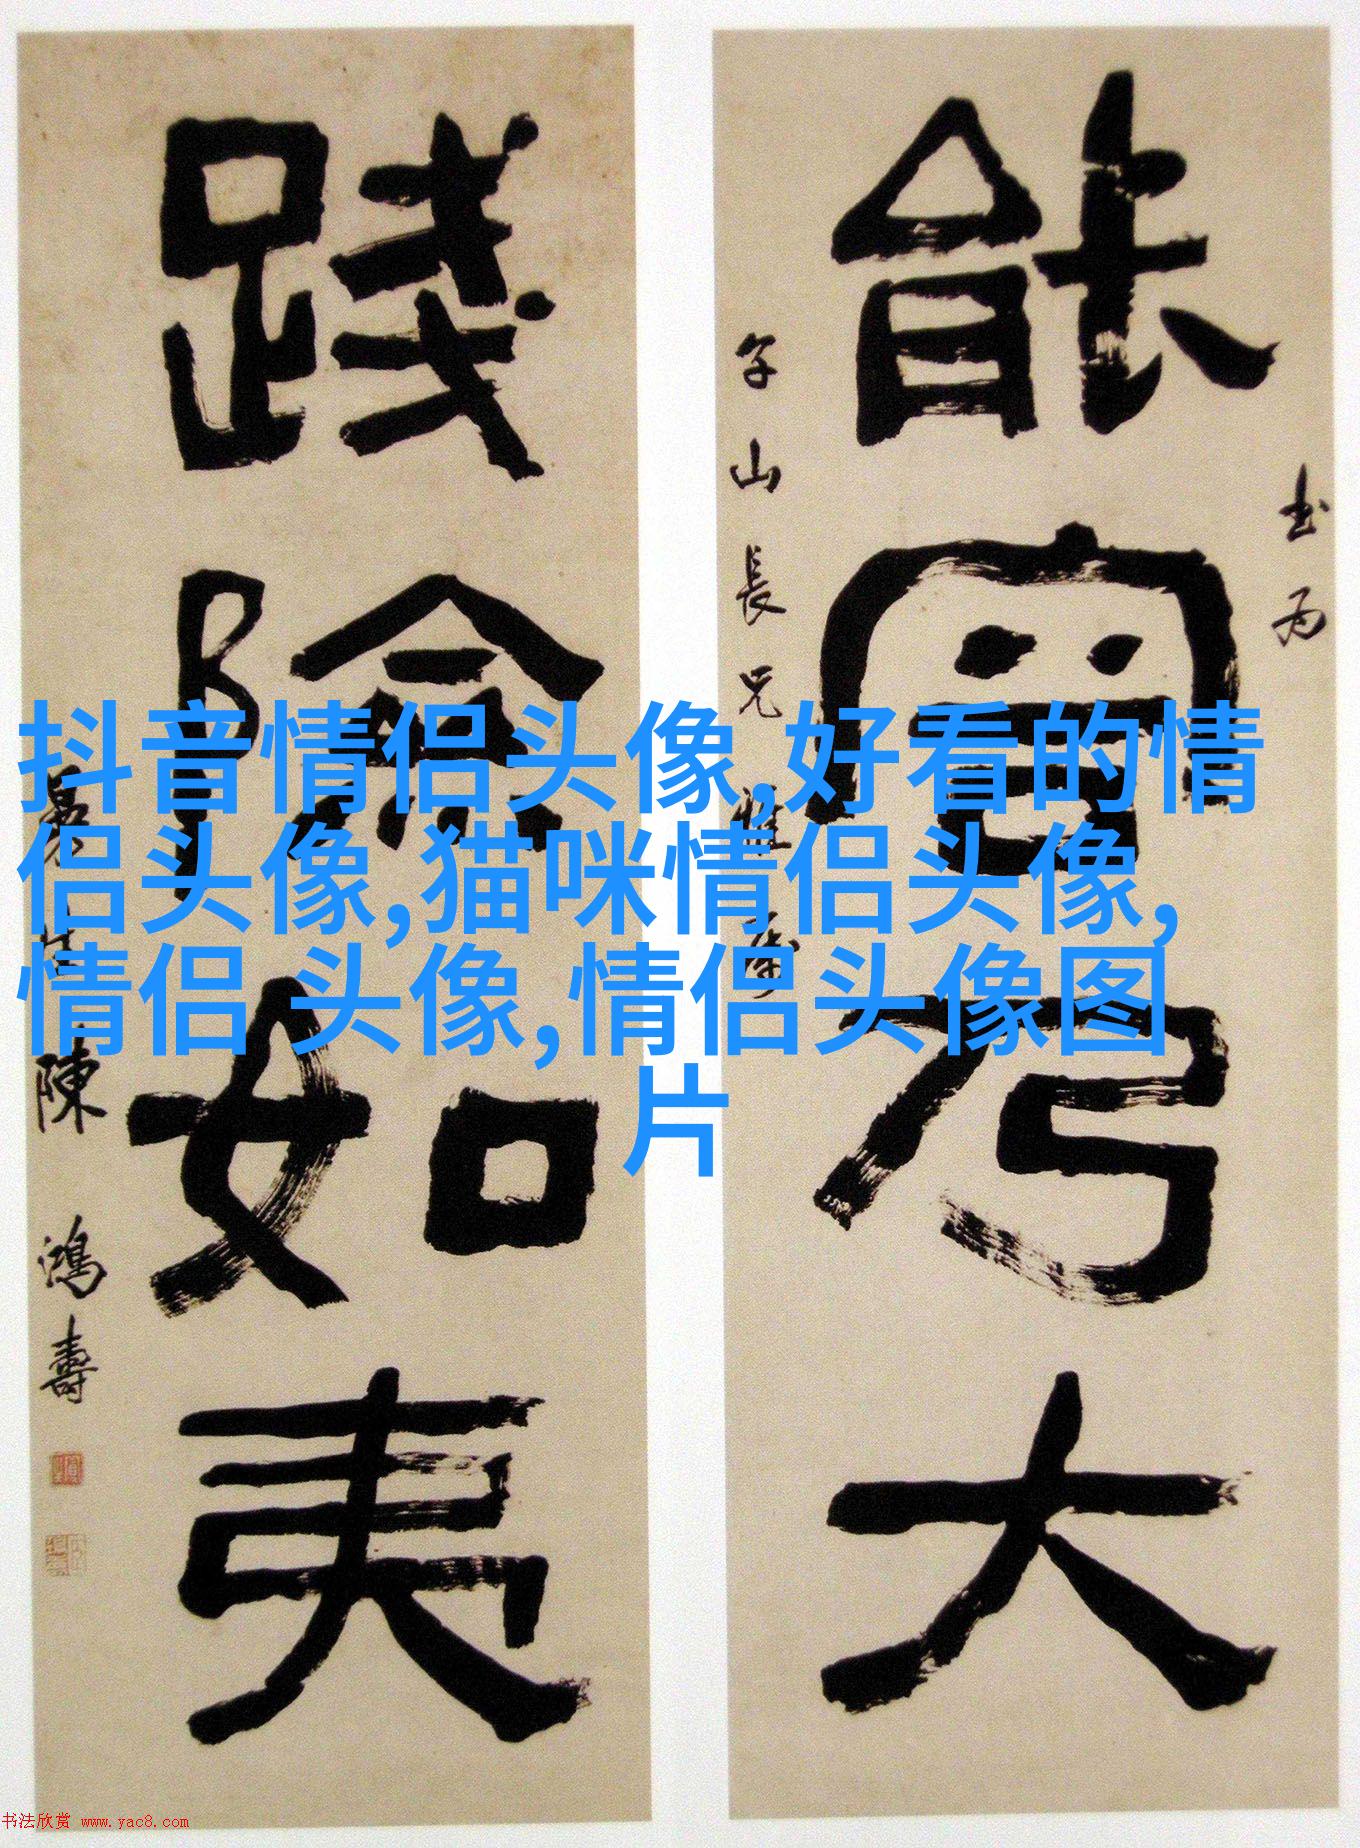 抖音情侣头像,好看的情
侣头像,猫咪情侣头像,
情侣 头像,情侣头像图
片
書為
能容乃大
子山長兄雅屬
踐險如夷
曼生陳鴻壽
书法欣赏 www.yac8.com